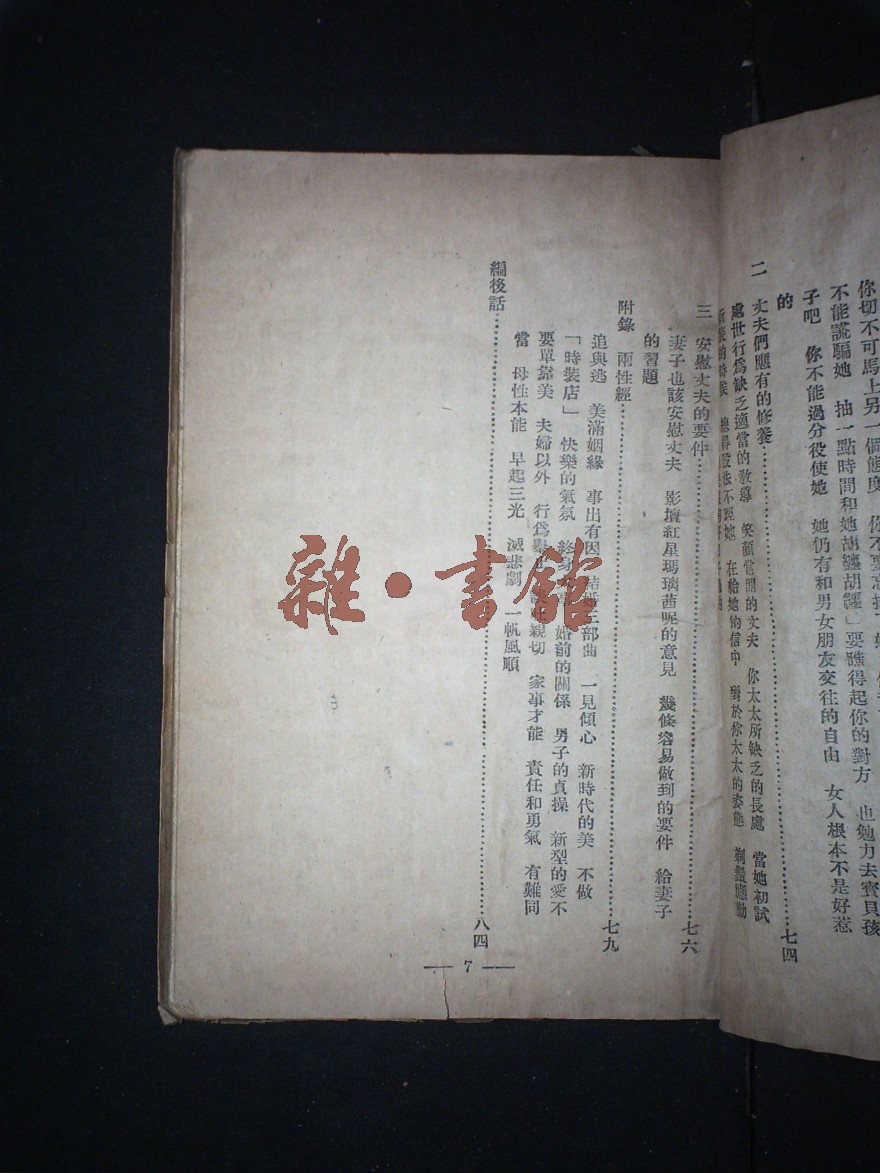 你切不可馬上另一個態度　你不要忘掉了
不能謊騙她　抽一點時間和她胡纏胡纏」要護得起你的對方　也勉力去寶貝孩
子吧　你不能過分役使她　她仍有和男女朋友交往的自由　女人根本不是好惹
的
二　丈夫們應有的修養……七四
處世行爲缺乏適當的教導　笑顏常開的丈夫　你太太所缺乏的長處　當她初試
新裝的時候　總得設法不理她　在給她的信中　對於你太太的姿態
三　安慰丈夫的要件……七六
妻子也該安慰丈夫　影壇紅星瑪璃茜呢的意見　幾條容易做到的要件　給妻子
的習題
附錄　兩性經……七九
追與逃　美滿姻緣　事出有因　結婚三部曲　一見傾心　新時代的美　不做
「時裝店」　快樂的氣氛　終身　婚前的關係　男子的貞操　新型的愛不
要單靠美　夫婦以外　行爲　親切　家事才能　責任和勇氣　有難同
當　母性本能　早起三光　滅悲劇　一帆風順
編後話……八四
— 7 —
雜·書館